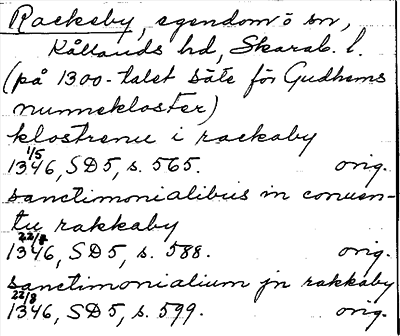 Rackeby, egendomö sn,
Kållands hd, Skarab. l.
(på 1300-talet säte för Gudhems
nunnekloster)
klostrene i rackaby
1/5
1346, SD5, s. 565. orig.
sanctimonialibus in conuen-
tu rakkaby
22/8
1346, SD5, s. 588. orig.
sanctimonialium jn rakkaby
22/8
1346, SD5, s. 599. orig.